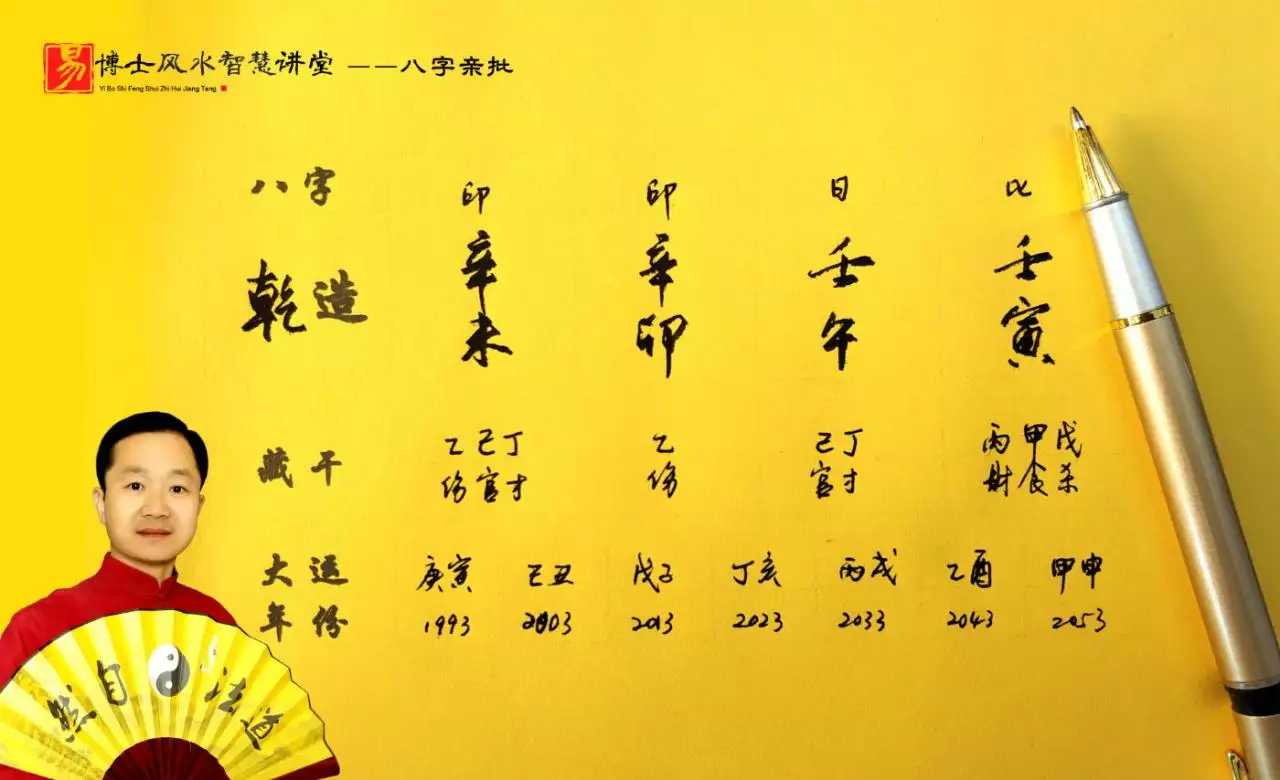 易 博士风水智慧讲堂 ——八字亲批
Yi Bo Shi Feng Shui Zhi Hui Jiang Tang
八字 印 印 日 比
乾造 辛 辛 壬 壬
未 卯 午 寅
藏干 乙己丁 乙 己丁 丙甲戊
伤官才 伤 官才 财食杀
大运 庚寅 己丑 戊子 丁亥 丙戌 乙酉 甲申
年份 1993 2003 2013 2023 2033 2043 2053
然自法道